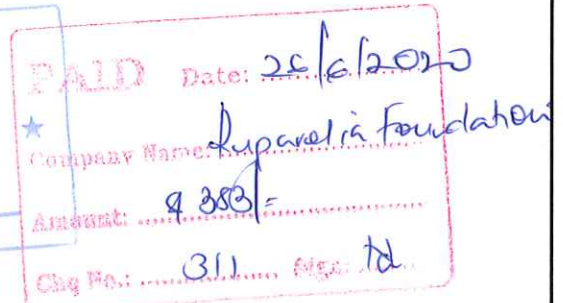 PAID Date: 26/6/2020
Company Name: Ruparelia Foundation
Amount: 9 383/=
Chq No.: 311 Sign: td